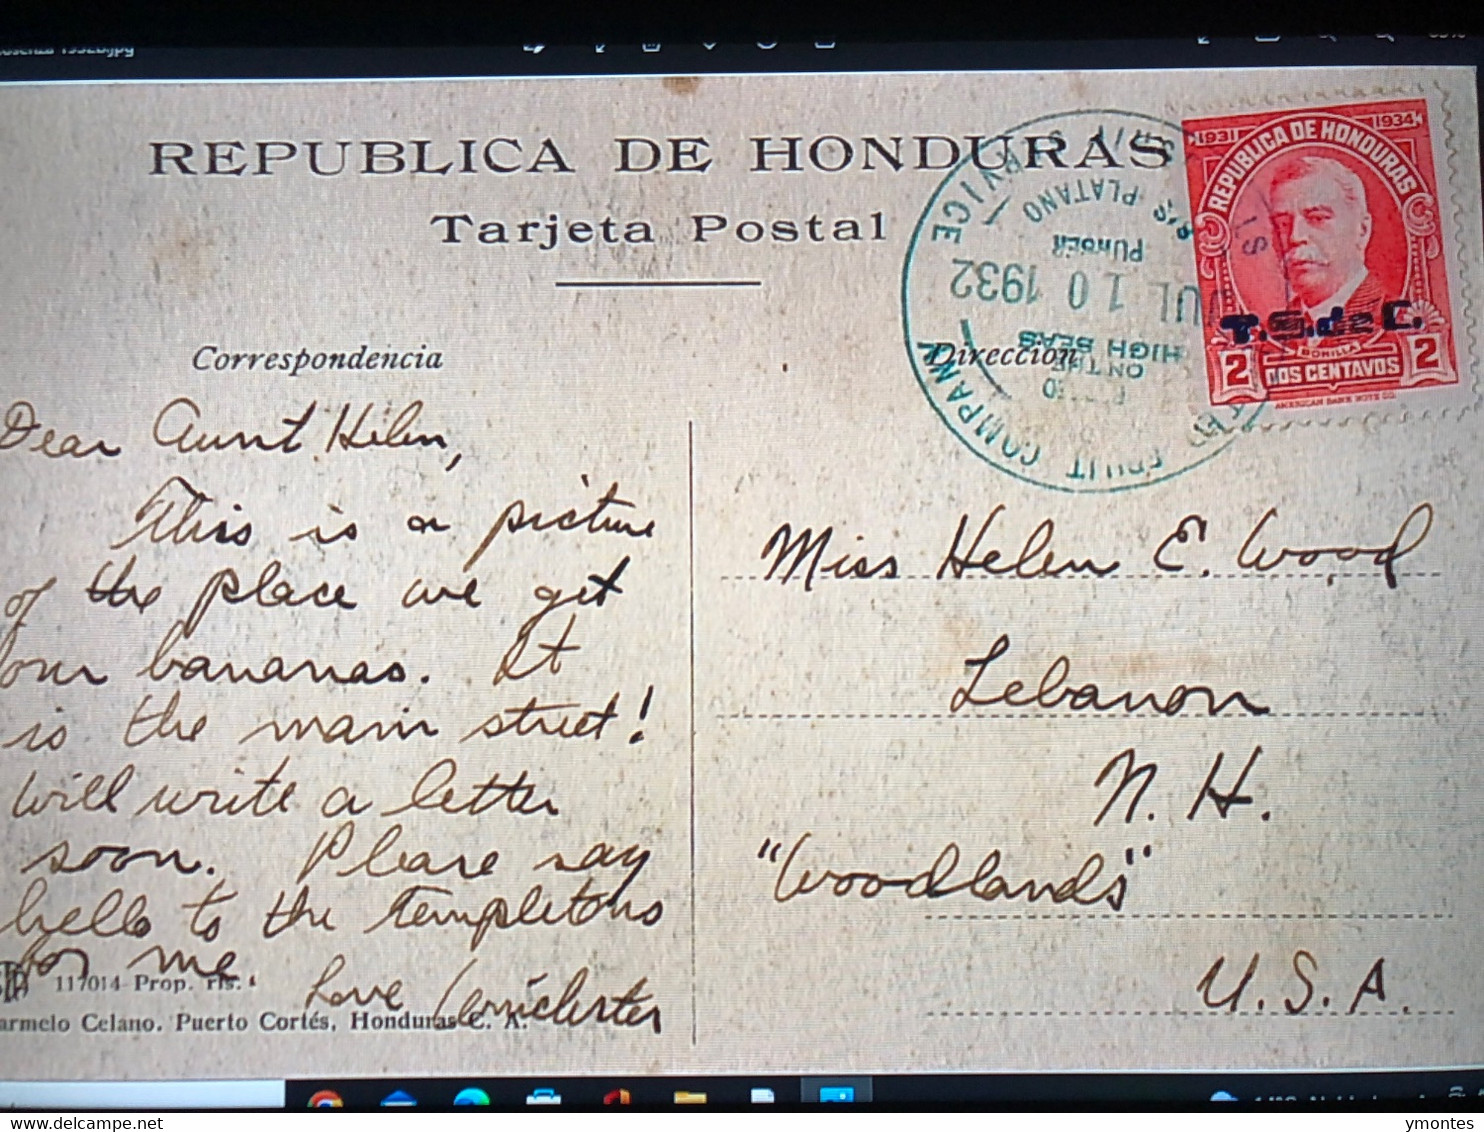 REPUBLICA DE HONDURAS
Tarjeta Postal
Correspondencia
Direccion
Dear Aunt Helen,
This is a picture
of the place we get
our bananas. It
is the main street!
Will write a letter
soon. Please say
hello to the Templetons
for me
Love
117014 Prop. rls.
armelo Celano. Puerto Cortés, Honduras C. A.
Miss Helen E. Wood
Lebanon
N. H.
"Woodlands"
U. S. A.
FRUIT COMPANY
S.S. PLATANO
PURSER
JUL 10 1932
ON THE
HIGH SEAS
1931 1934
REPUBLICA DE HONDURAS
T.S.de C.
BONILLA
2 DOS CENTAVOS 2
AMERICAN BANK NOTE CO.
ymontes